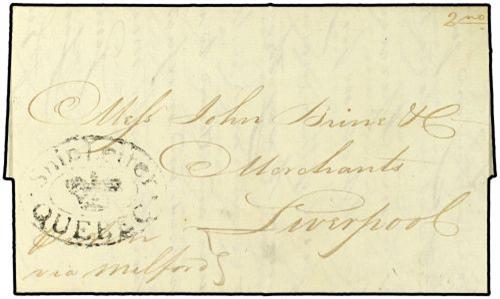 2nd
Mess John Brine & Co
Merchants
Liverpool
Ship Letter
QUEBEC
via Milford